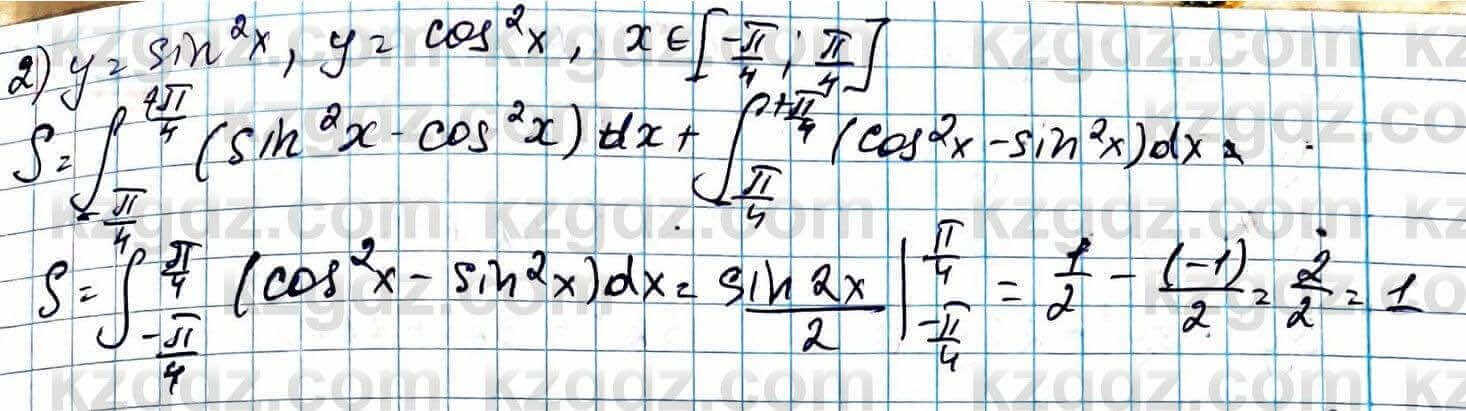 2) y = sin²x, y = cos²x, x ∈ [-π/4; π/4]
S = ∫_{-π/4}^{π/4} (sin²x - cos²x) dx + ∫_{-π/4}^{+π/4} (cos²x - sin²x) dx
S = ∫_{-π/4}^{π/4} (cos²x - sin²x) dx = sin 2x / 2 |_{-π/4}^{π/4} = 1/2 - (-1)/2 = 2/2 = 1
kzgdz.com